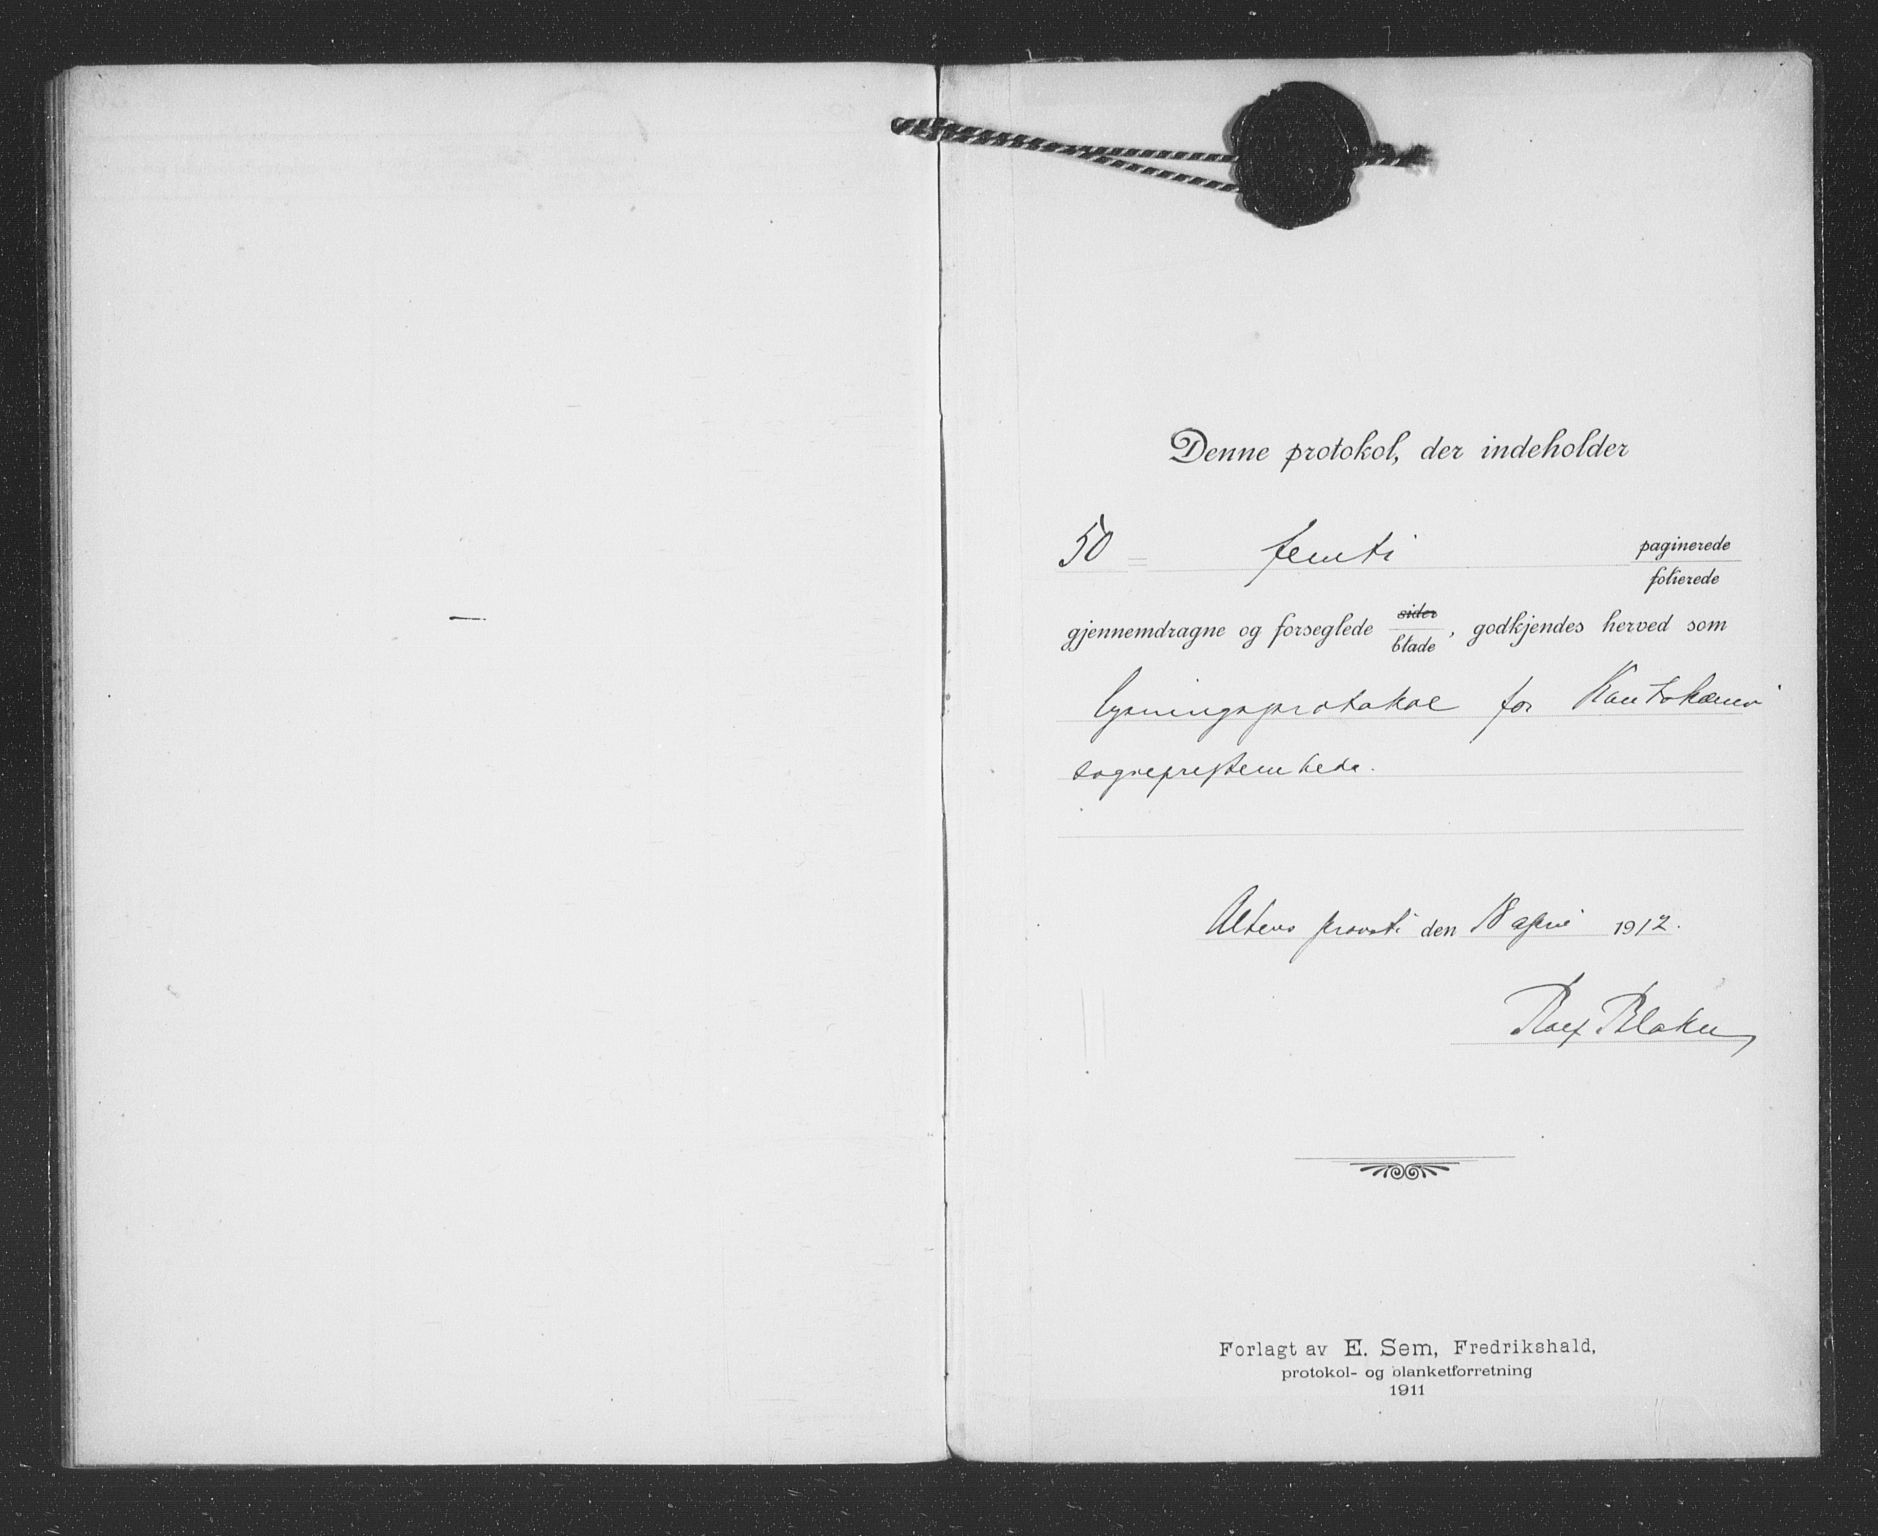 Denne protokol, der indeholder
50 = femti paginerede
foliierede
gjennemdragne og forseglede sider
blade, godkjendes herved som
lysningsprotokol for Kautokeino
sogneprestembede.
Altens provsti den 18 april 1912.
Rolf Blaker
Forlagt av E. Sem, Fredrikshald,
protokol- og blanketforretning
1911